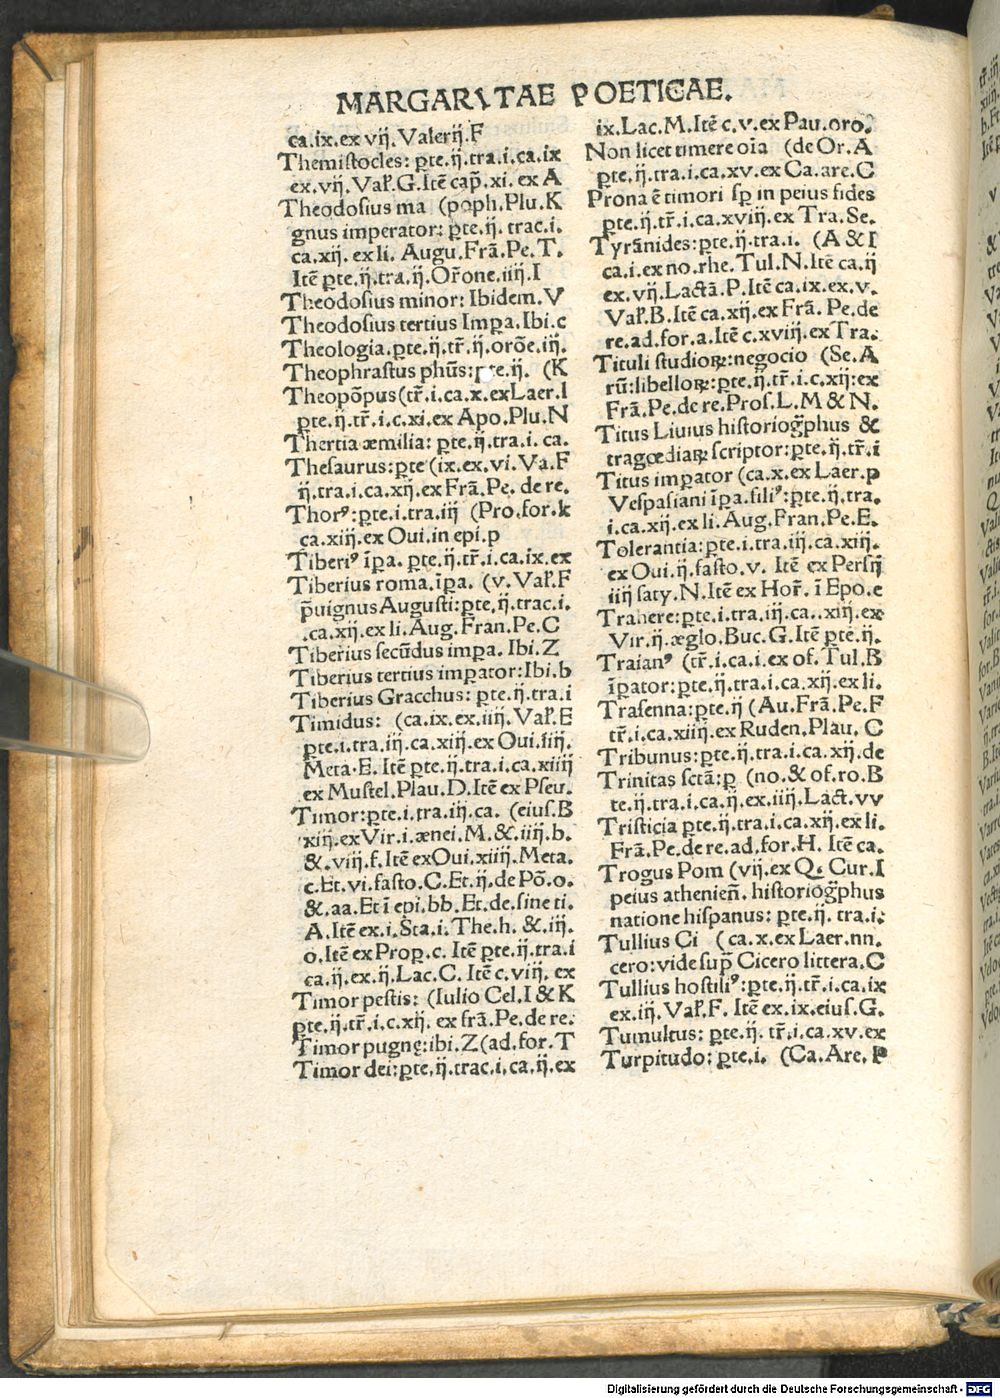 MARGARITAE POETICAE.
ca.ix.ex vij. Valerij.F
Themistocles: pte.ij.tra.i.ca.ix
ex.vij. Vaƚ.G.Itē cap̄.xi. ex A
Theodosius ma (poph.Plu.K
gnus imperator: pte.ij. trac.i.
ca.xij. ex li. Augu.Frā.Pe.T.
Itē pte.ij.tra.ij.Or̄one.iiij.I
Theodosius minor: Ibidem.V
Theodosius tertius Impa.Ibi.c
Theologia.pte.ij.tr̄.ij.orōe.iij.
Theophrastus phūs:pte.ij. (K
Theopōpus(tr̄.i.ca.x.exLaer.l
pte.ij.tr̄.i.c.xi.ex Apo.Plu.N
Thertia æmilia: pte.ij.tra.i.ca.
Thesaurus:pte(ix.ex.vi.Va.F
ij.tra.i.ca.xij.ex Frā.Pe. de re.
Thorꝰ:pte.i.tra.iij (Pro.for.k
ca.xiij.ex Oui.in epi.p
Tiberiꝰ īpa. pte.ij.tr̄.i.ca.ix.ex
Tiberius roma.īpa. (v.Vaƚ.F
p̄uignus Augusti:pte.ij.trac.i.
.ca.xij.ex li.Aug.Fran.Pe.C
Tiberius secūdus impa. Ibi.Z
Tiberius tertius impator:Ibi.b
Tiberius Gracchus: pte.ij.tra.i
Timidus: (ca.ix.ex.iiij.Vaƚ.E
pte.i.tra.iij.ca.xiij.ex Oui.iiij.
Meta.E. Itē pte.ij.tra.i.ca.xiiij
ex Mustel.Plau.D.Itē ex Pseu.
Timor:pte.i.tra.iij.ca. (eius.B
xiij.ex Vir.i.ænei.M.&.iiij.b.
&.viij.f.Itē exOui.xiiij.Meta.
c.Et.vi.fasto.C.Et.ij.de Pō.o.
&.aa.Et ī epi.bb.Et.de.sine ti.
A.Itē ex.i.Sta.i.The.h. &.iij.
o.Itē ex Prop.c. Itē pte.ij.tra.i
ca.ij.ex.ij.Lac.C. Itē c.viij. ex
Timor pestis: (Iulio Cel.I & K
pte.ij.tr̄.i.c.xij. ex frā.Pe.de re.
Timor pugnę:ibi.Z(ad.for.T
Timor dei:pte.ij.trac.i.ca.ij.ex
ix.Lac.M.Itē c.v.ex Pau.oro.
Non licet timere oīa (de Or.A
pte.ij.tra.i.ca.xv.ex Ca.are.C
Prona ē timori sp in peius fides
pte.ij.tr̄.i.ca.xviij.ex Tra.Se.
Tyrānides:pte.ij.tra.i. (A & I
ca.i.ex no.rhe.Tul.N.Itē ca.ij
ex.vij.Lactā.P.Itē ca.ix.ex.v.
Vaƚ.B.Itē ca.xij.ex Frā. Pe.de
re.ad.for.a.Itē c.xviij.ex Tra.
Tituli studioꝝ:negocio (Se.A
rū:libelloꝝ:pte.ij.tr̄.i.c.xij:ex
Frā.Pe.de re.Prof.L.M & N.
Titus Liuius historiog̃phus &
tragœdiaꝝ scriptor:pte.ij.tr̄.i
Titus imperator (ca.x.ex Laer.p
Vespasiani īpa.filiꝰ:pte.ij.tra.
i.ca.xij.ex li.Aug.Fran.Pe.E.
Tolerantia:pte.i.tra.iij.ca.xiij.
ex Oui.ij.fasto.v. Itē ex Persij
iiij saty.N.Itē ex Hor̄. ī Epo.e
Trahere:pte.i.tra.iij.ca..xiij.ex
Vir.ij.æglo.Buc.G.Itē pte.ij.
Traianꝰ (tr̄.i.ca.i.ex of. Tul.B
īpator:pte.ij.tra.i.ca.xij.ex li.
Trasenna:pte.ij (Au.Frā.Pe.F
tr̄.i.ca.xiiij.ex Ruden.Plau. C
Tribunus:pte.ij.tra.i.ca.xij.de
Trinitas sctā:p (no.& of.ro.B
te.ij.tra.i.ca.ij.ex.iiij.Lact.vv
Tristicia pte.ij.tra.i.ca.xij.ex li.
Frā.Pe.de re.ad.for.H. Itē ca.
Trogus Pom (vij.ex Q. Cur.I
peius athenien̄. historiog̃phus
natione hispanus: pte.ij. tra.i.
Tullius Ci (ca.x.ex Laer.nn.
cero:vide sup̄ Cicero littera.C
Tullius hostiliꝰ:pte.ij.tr̄.i.ca.ix
ex.iij.Vaƚ.F. Itē ex.ix.eius.G.
Tumultus: pte.ij. tr̄.i.ca.xv.ex
Turpitudo: pte.i. (Ca.Are. P
Digitalisierung gefördert durch die Deutsche Forschungsgemeinschaft - DFG